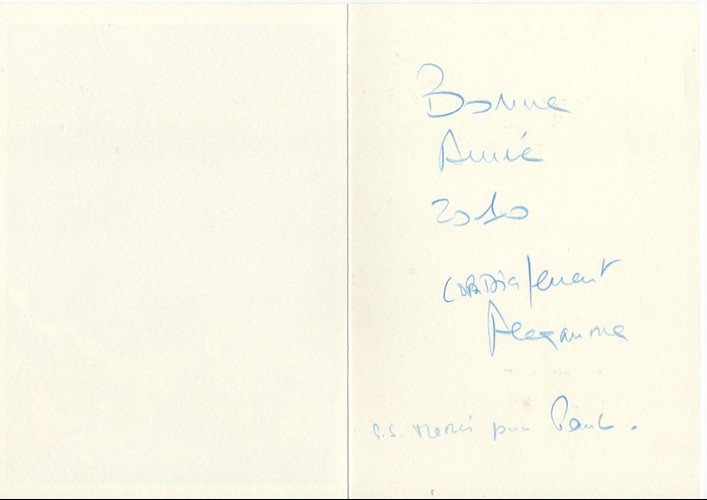 Bonne
Année
2010
cordialement
P.S Merci pour Paul.